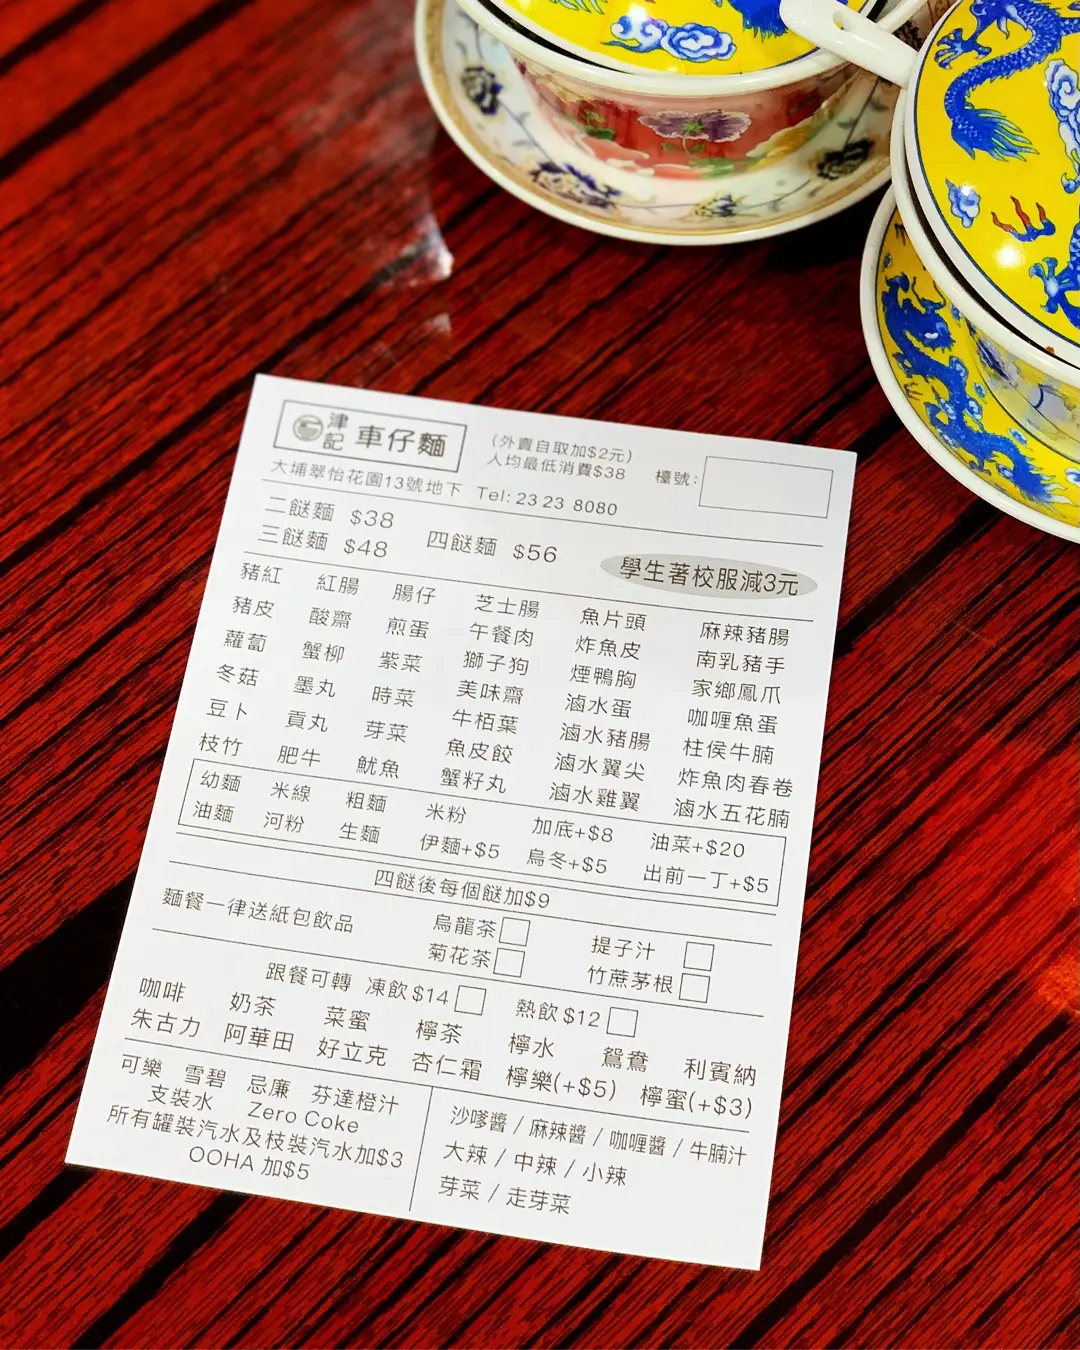 津記 車仔麵
(外賣自取加$2元)
人均最低消費$38
檯號:
大埔翠怡花園13號地下 Tel: 23 23 8080
二餸麵 $38
三餸麵 $48
四餸麵 $56
學生著校服減3元
豬紅 紅腸 腸仔 芝士腸 魚片頭 麻辣豬腸
豬皮 酸齋 煎蛋 午餐肉 炸魚皮 南乳豬手
蘿蔔 蟹柳 紫菜 獅子狗 煙鴨胸 家鄉鳳爪
冬菇 墨丸 時菜 美味齋 滷水蛋 咖喱魚蛋
豆卜 貢丸 芽菜 牛栢葉 滷水豬腸 柱侯牛腩
枝竹 肥牛 魷魚 魚皮餃 滷水翼尖 炸魚肉春卷
蟹籽丸 滷水雞翼 滷水五花腩
幼麵 米線 粗麵 米粉 加底+$8 油菜+$20
油麵 河粉 生麵 伊麵+$5 烏冬+$5 出前一丁+$5
四餸後每個餸加$9
麵餐一律送紙包飲品
烏龍茶 提子汁
菊花茶 竹蔗茅根
跟餐可轉 凍飲$14 熱飲$12
咖啡 奶茶 菜蜜 檸茶 檸水 鴛鴦 利賓納
朱古力 阿華田 好立克 杏仁霜 檸樂(+$5) 檸蜜(+$3)
可樂 雪碧 忌廉 芬達橙汁
支裝水 Zero Coke
所有罐裝汽水及枝裝汽水加$3
OOHA 加$5
沙嗲醬 / 麻辣醬 / 咖喱醬 / 牛腩汁
大辣 / 中辣 / 小辣
芽菜 / 走芽菜